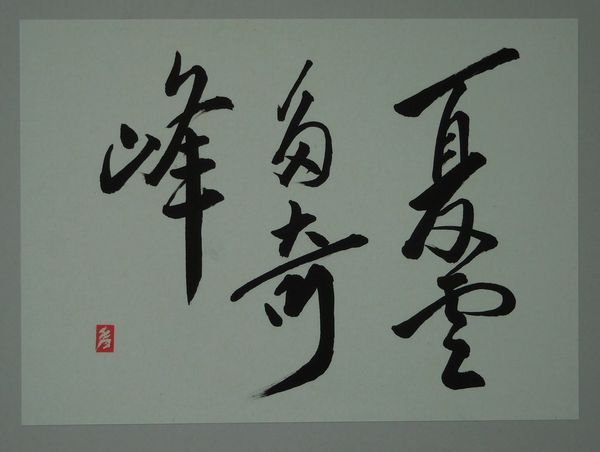 夏雲
多奇
峰